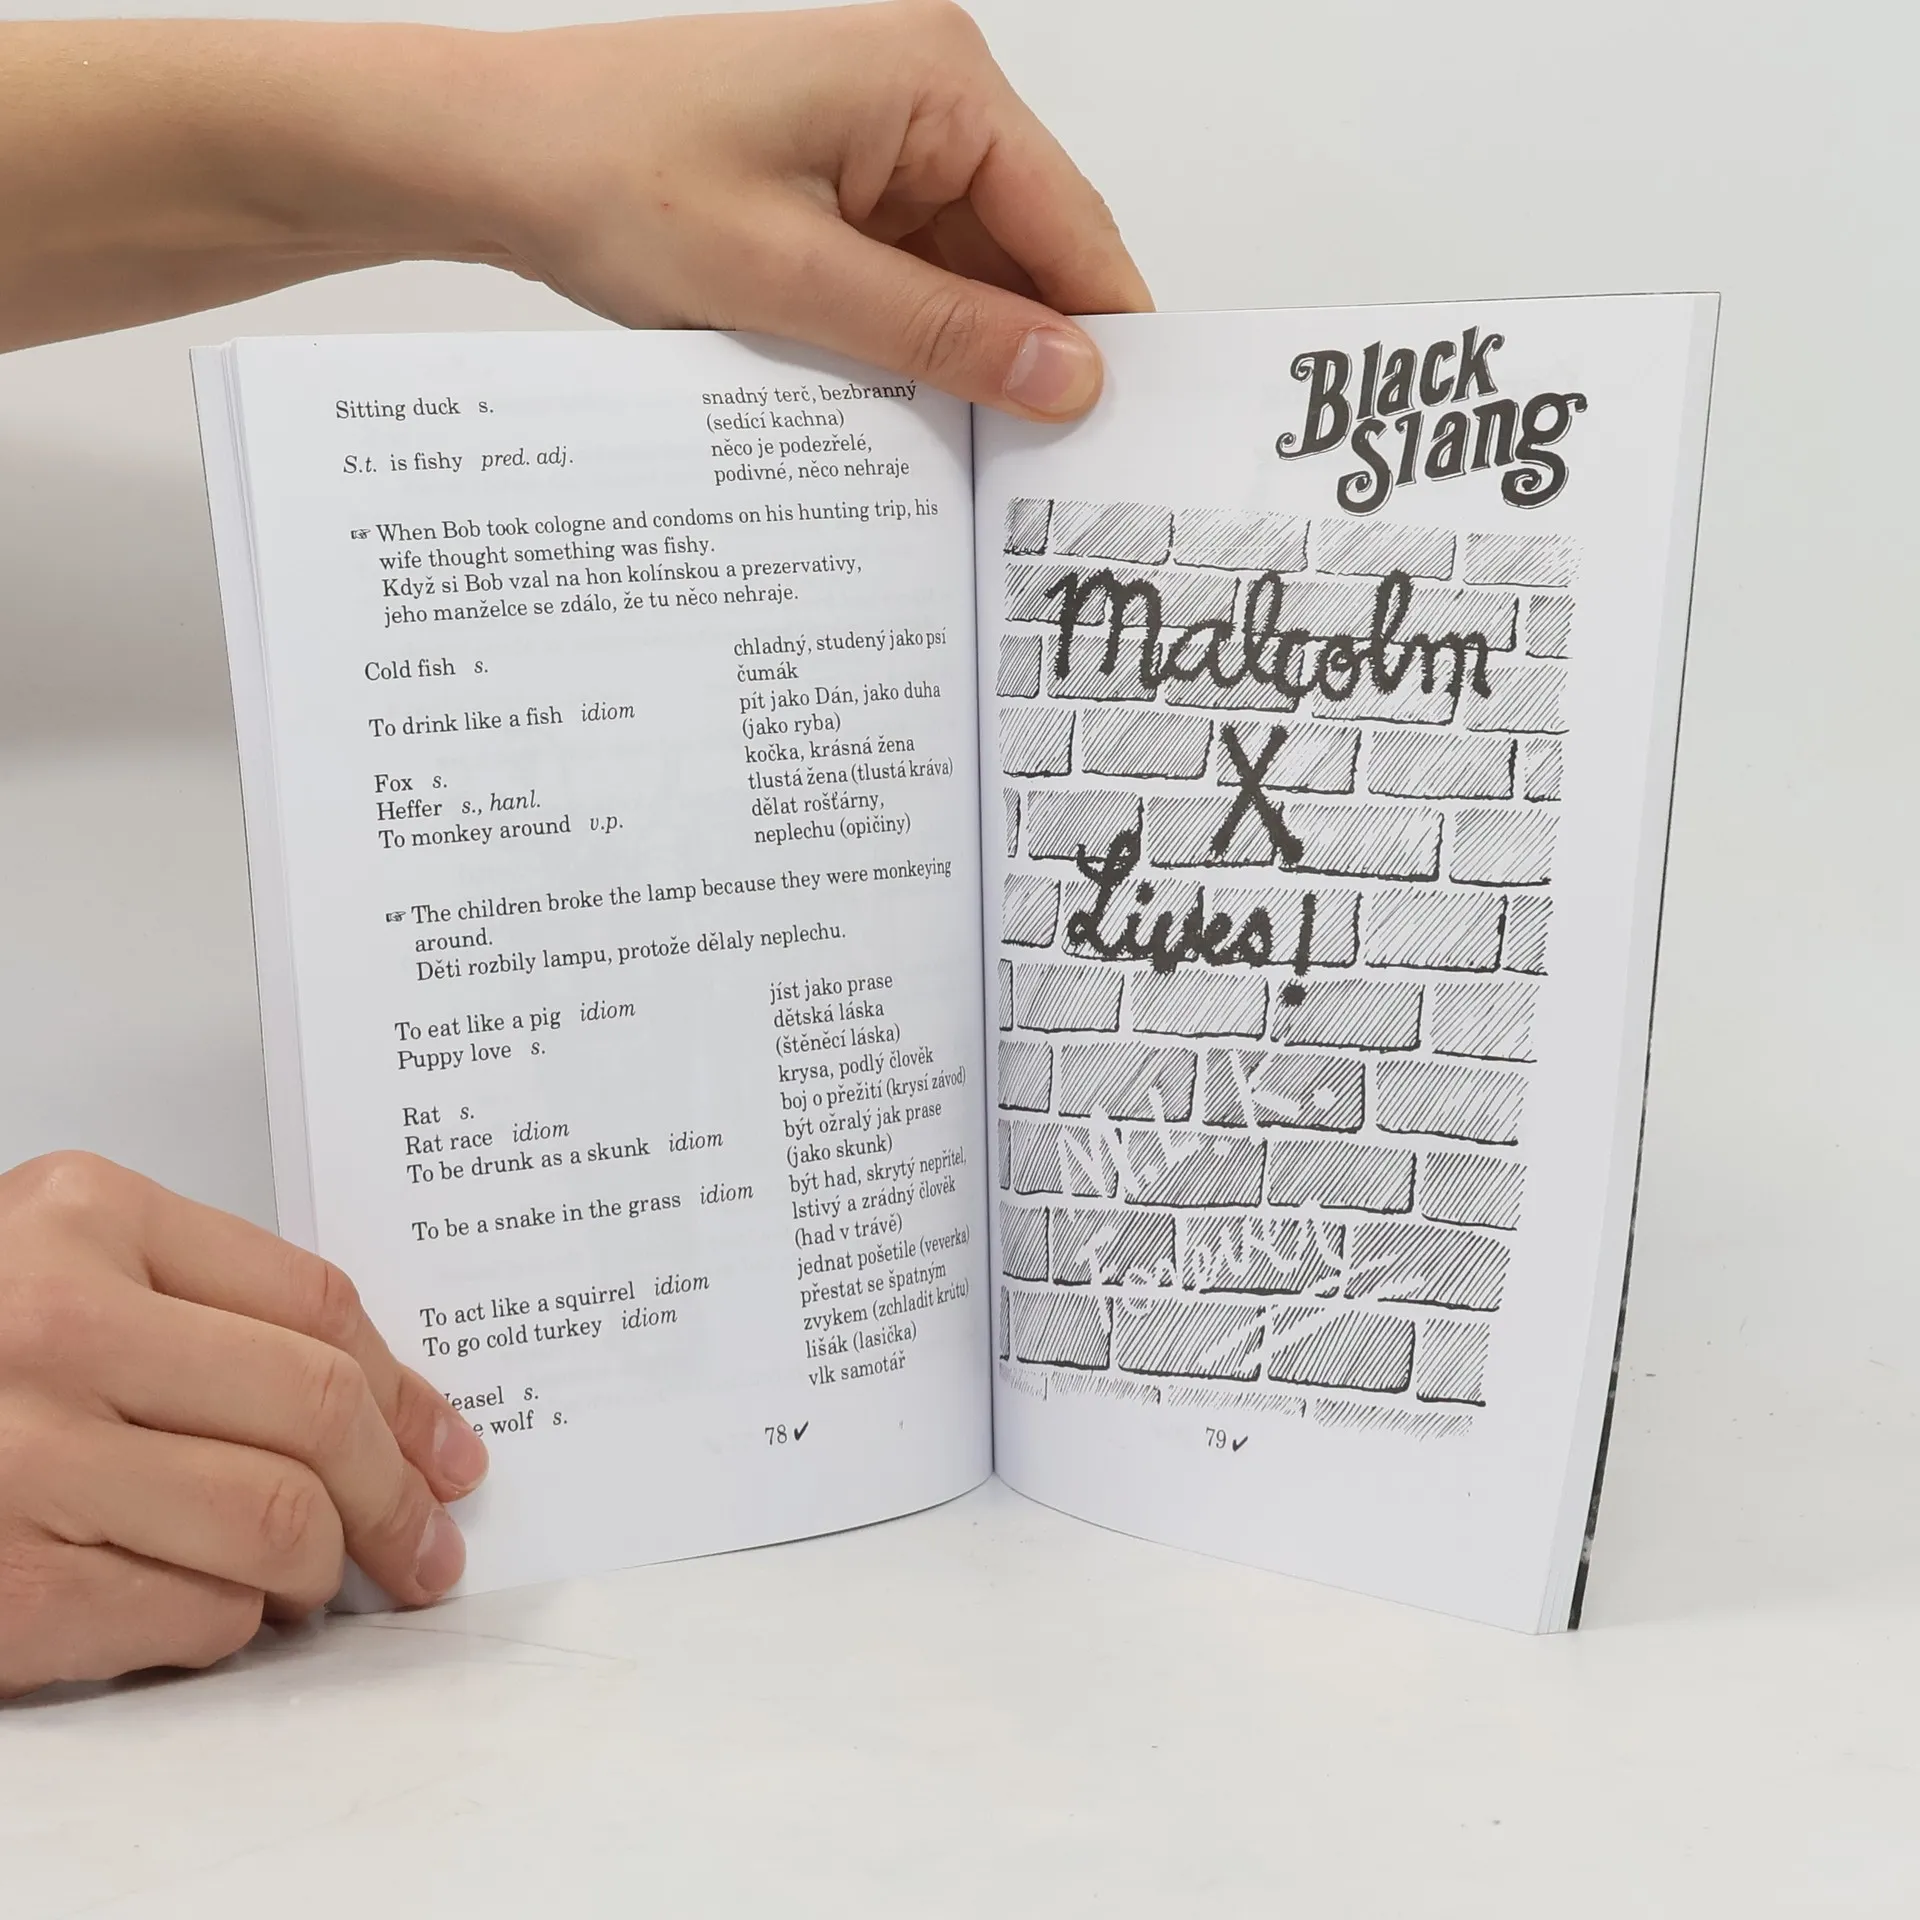 Sitting duck s.
snadný terč, bezbranný
(sedící kachna)
S.t. is fishy pred. adj.
něco je podezřelé,
podivné, něco nehraje
☞ When Bob took cologne and condoms on his hunting trip, his
wife thought something was fishy.
Když si Bob vzal na hon kolínskou a prezervativy,
jeho manželce se zdálo, že tu něco nehraje.
Cold fish s.
chladný, studený jako psí
čumák
To drink like a fish idiom
pít jako Dán, jako duha
(jako ryba)
Fox s.
kočka, krásná žena
Heffer s., hanl.
tlustá žena (tlustá kráva)
To monkey around v.p.
dělat rošťárny,
neplechu (opičiny)
☞ The children broke the lamp because they were monkeying
around.
Děti rozbily lampu, protože dělaly neplechu.
To eat like a pig idiom
jíst jako prase
Puppy love s.
dětská láska
(štěněcí láska)
Rat s.
krysa, podlý člověk
Rat race idiom
boj o přežití (krysí závod)
To be drunk as a skunk idiom
být ožralý jak prase
(jako skunk)
To be a snake in the grass idiom
být had, skrytý nepřítel,
lstivý a zrádný člověk
(had v trávě)
To act like a squirrel idiom
jednat pošetile (veverka)
To go cold turkey idiom
přestat se špatným
zvykem (zchladit krůtu)
easel s.
lišák (lasička)
e wolf s.
vlk samotář
78 ✓
Black
Slang
Malcolm
X
Lives!
79 ✓